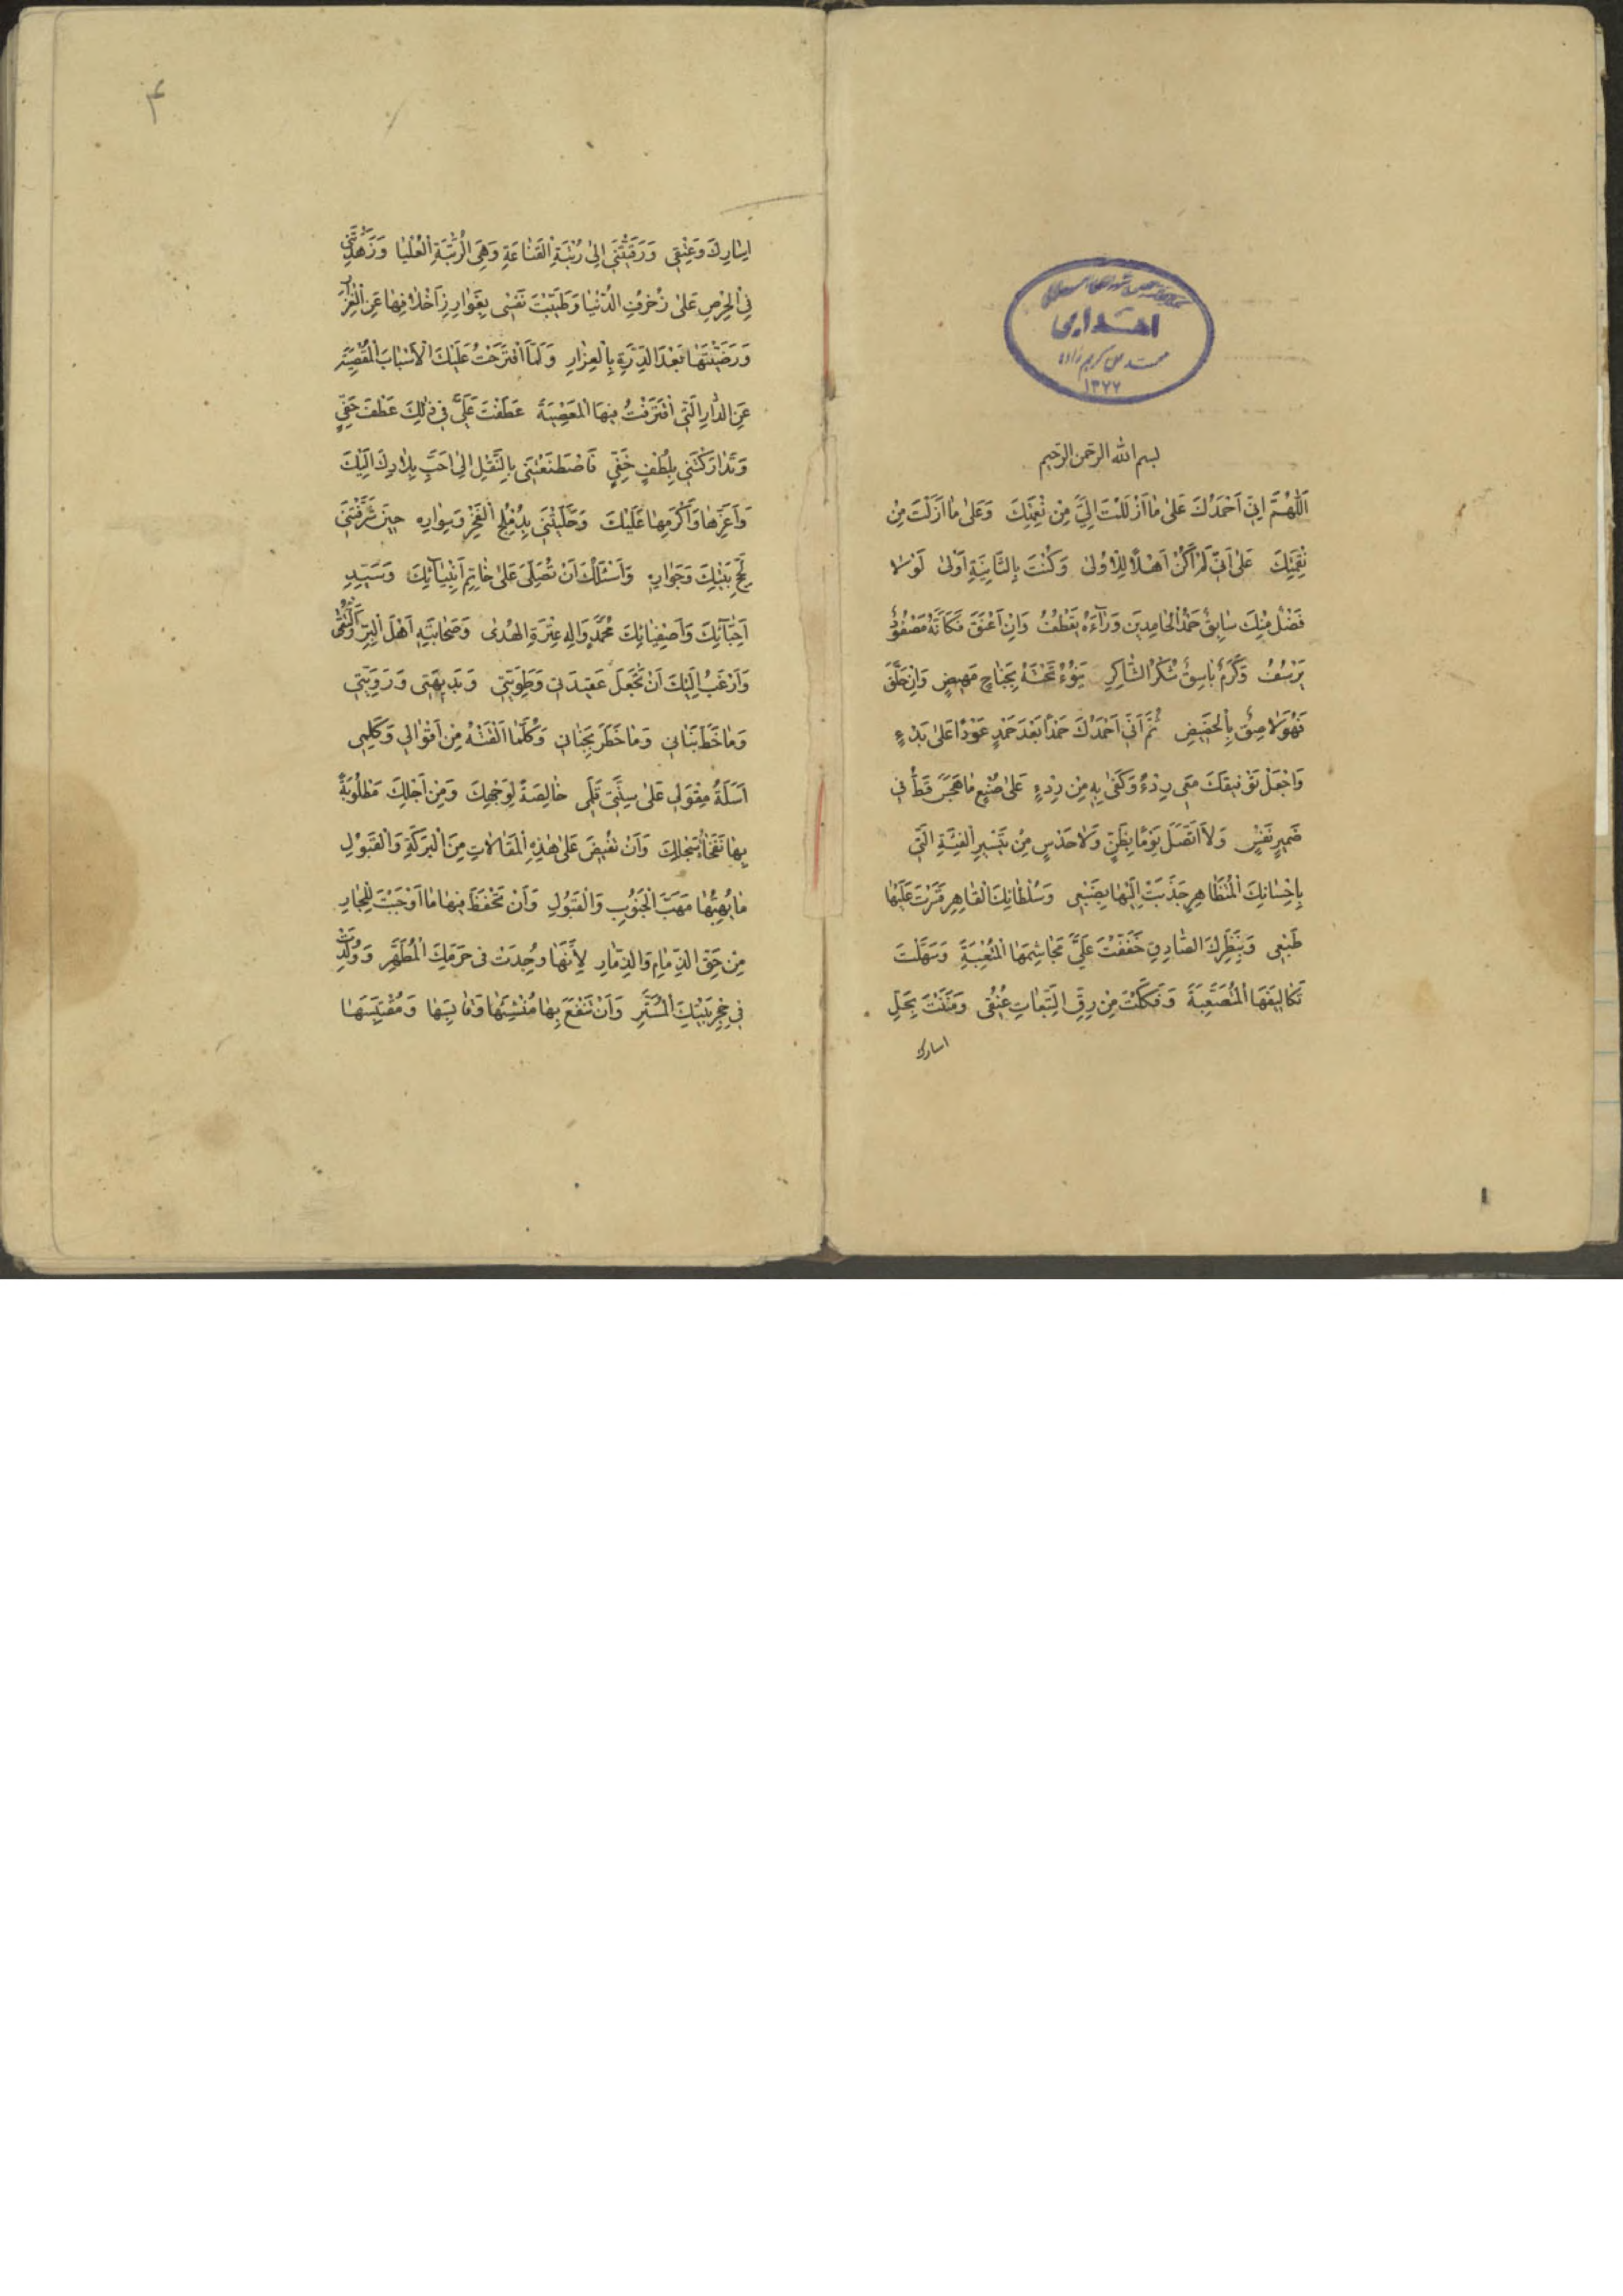 اهدایی
۱۳۷۷
بسم الله الرحمن الرحیم
اَللّٰهُمَّ اِنّي اَحْمَدُكَ عَلىٰ مٰا اَزْلَلْتَ اِلَيَّ مِنْ نِعْمَتِكَ وَعَلىٰ مٰا اَزَلْتَ مِنْ
نِقْمَتِكَ عَلىٰ اَنّي لَمْ اَكُنْ اَهْلًا لِلْاُولىٰ وَكُنْتَ بِالثّٰانِيَةِ اَوْلىٰ لَوْلٰا
فَضْلٌ مِنْكَ سٰابِقٌ حَمْدُ الْحٰامِدِينَ وَرٰآءَهُ يَقْطُفُ وَاِنْ اَعْنَقَ فَكَاَنَّهُ مَصْفُودٌ
يَرْسُفُ وَكَرَمٌ بٰاسِقٌ شُكْرُ الشّٰاكِرِ يَنُوءُ تَحْتَهُ بِجَنٰاحٍ مَهِيضٍ وَاِنْ حَلَّقَ
فَهُوَ لٰاصِقٌ بِالْحَضِيضِ ثُمَّ اَنّي اَحْمَدُكَ حَمْدًا بَعْدَ حَمْدٍ عَوْدًا عَلىٰ بَدْءٍ
وَاجْعَلْ تَوْفِيقَكَ مَعِي رِدْءً وَكَفىٰ بِهِ مِنْ رِدْءٍ عَلىٰ صُنْعٍ مٰا هَجَسَ قَطُّ في
ضَمِيرِ نَفْسٍ وَلَا اتَّصَلَ يَوْمًا بِظَنٍّ وَلٰا حَدْسٍ مِنْ تَيْسِيرِ الْفَيْئَةِ الَّتي
بِاِحْسٰانِكَ الْمُتَظٰاهِرِ جَذَبْتَ اِلَيْهٰا بِضَبْعي وَسُلْطٰانِكَ الْقٰاهِرِ قَسَرْتَ عَلَيْهٰا
طَبْعي وَبِنَظَرِكَ الصّٰادِقِ خَفَّفْتَ عَلَيَّ مَجٰاشِمَهَا الْمُتْعِبَةَ وَسَهَّلْتَ
تَكٰالِيفَهَا الْمُتَصَعِّبَةَ وَفَكَكْتَ مِنْ رِقِّ التَّبِعٰاتِ عُنُقي وَمَنَنْتَ بِحَلِّ
اسارك
۲
اِسٰارِكَ وَعِتْقي وَرَقَّيْتَني اِلىٰ رُتْبَةِ الْقَنٰاعَةِ وَهِيَ الرُّتْبَةُ الْعُلْيٰا وَزَهَّدْتَني
فِي الْحِرْصِ عَلىٰ زُخْرُفِ الدُّنْيٰا وَطَيَّبْتَ نَفْسي بِغَوٰارِزِ اَخْلٰافِهٰا عَنِ الْغِزٰارِ
وَرَضَّيْتَهٰا بَعْدَ الدِّرَّةِ بِالْغِرٰارِ وَلَمَّا اقْتَرَحْتُ عَلَيْكَ الْاَسْبٰابَ الْمُقْصِيَةَ
عَنِ الدّٰارِ الَّتِي اقْتَرَفْتُ فِيهَا الْمَعْصِيَةَ عَطَفْتَ عَلَيَّ في ذٰلِكَ عَطْفَ حَفِيٍّ
وَتَدٰارَكْتَني بِلُطْفٍ خَفِيٍّ فَاصْطَنَعْتَني بِالنَّقْلِ اِلىٰ اَحَبِّ بِلٰادِكَ اِلَيْكَ
وَاَعَزِّهٰا وَاَكْرَمِهٰا عَلَيْكَ وَحَلَّيْتَني بِدُمْلُجِ الْفَخْرِ وَسِوٰارِهِ حِينَ شَرَّفْتَني
بِحَجِّ بَيْتِكَ وَجِوٰارِهِ وَاَسْئَلُكَ اَنْ تُصَلِّيَ عَلىٰ خٰاتِمِ اَنْبِيٰائِكَ وَسَيِّدِ
اَحِبّٰائِكَ وَاَصْفِيٰائِكَ مُحَمَّدٍ وَاٰلِهِ عِتْرَةِ الْهُدىٰ وَصَحٰابَتِهِ اَهْلَ الْبِرِّ وَالتُّقىٰ
وَاَرْغَبُ اِلَيْكَ اَنْ تَجْعَلَ عَقِيدَتي وَطَوِيَّتي وَبَدِيهَتي وَرَوِيَّتي
وَمٰا خَطَّ بَنٰاني وَمٰا خَطَرَ بِجَنٰاني وَكُلَّمٰا اَلَّفْتُهُ مِنْ اَقْوٰالي وَكَلِمي
اَسَلَةُ مِقْوَلي عَلىٰ سِنَّيْ قَلَمي خٰالِصَةً لِوَجْهِكَ وَمِنْ اَجْلِكَ مَطْلُوبَةً
بِهٰا نَفَحٰاتُ سِجٰالِكَ وَاَنْ تُفِيضَ عَلىٰ هٰذِهِ الْمَقٰالٰاتِ مِنَ الْبَرَكَةِ وَالْقَبُولِ
مٰا يُهِبُّهٰا مَهَبَّ الْجَنُوبِ وَالْقَبُولِ وَاَنْ تَحْفَظَ فِيهٰا مٰا اَوْجَبْتَ لِلْجٰارِ
مِنْ حَقِّ الذِّمٰامِ وَالذِّمٰارِ لِاَنَّهٰا وُجِدَتْ في حَرَمِكَ الْمُطَهَّرِ وَوُلِدَتْ
في حِجْرِ بَيْتِكَ الْمُسَتَّرِ وَاَنْ تَنْفَعَ بِهٰا مُنْشِئَهٰا وَقٰابِسَهٰا وَمُقْتَبِسَهٰا